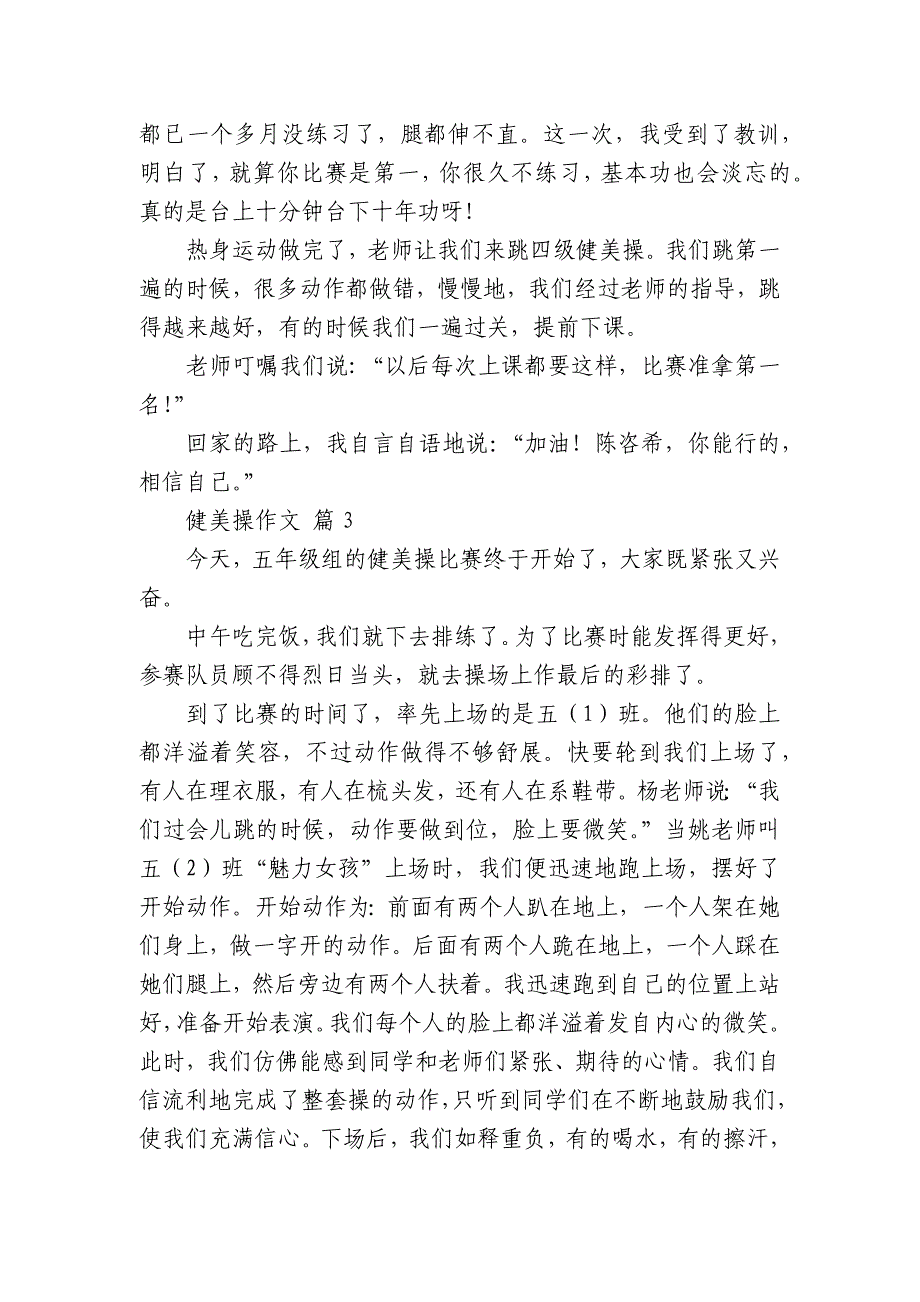 都已一个多月没练习了，腿都伸不直。这一次，我受到了教训，
明白了，就算你比赛是第一，你很久不练习，基本功也会淡忘的。
真的是台上十分钟台下十年功呀！
热身运动做完了，老师让我们来跳四级健美操。我们跳第一
遍的时候，很多动作都做错，慢慢地，我们经过老师的指导，跳
得越来越好，有的时候我们一遍过关，提前下课。
老师叮嘱我们说：“以后每次上课都要这样，比赛准拿第一
名！”
回家的路上，我自言自语地说：“加油！陈咨希，你能行的，
相信自己。”
健美操作文 篇3
今天，五年级组的健美操比赛终于开始了，大家既紧张又兴
奋。
中午吃完饭，我们就下去排练了。为了比赛时能发挥得更好，
参赛队员顾不得烈日当头，就去操场上作最后的彩排了。
到了比赛的时间了，率先上场的是五（1）班。他们的脸上
都洋溢着笑容，不过动作做得不够舒展。快要轮到我们上场了，
有人在理衣服，有人在梳头发，还有人在系鞋带。杨老师说：“我
们过会儿跳的时候，动作要做到位，脸上要微笑。”当姚老师叫
五（2）班“魅力女孩”上场时，我们便迅速地跑上场，摆好了
开始动作。开始动作为：前面有两个人趴在地上，一个人架在她
们身上，做一字开的动作。后面有两个人跪在地上，一个人踩在
她们腿上，然后旁边有两个人扶着。我迅速跑到自己的位置上站
好，准备开始表演。我们每个人的脸上都洋溢着发自内心的微笑。
此时，我们仿佛能感到同学和老师们紧张、期待的心情。我们自
信流利地完成了整套操的动作，只听到同学们在不断地鼓励我们，
使我们充满信心。下场后，我们如释重负，有的喝水，有的擦汗，